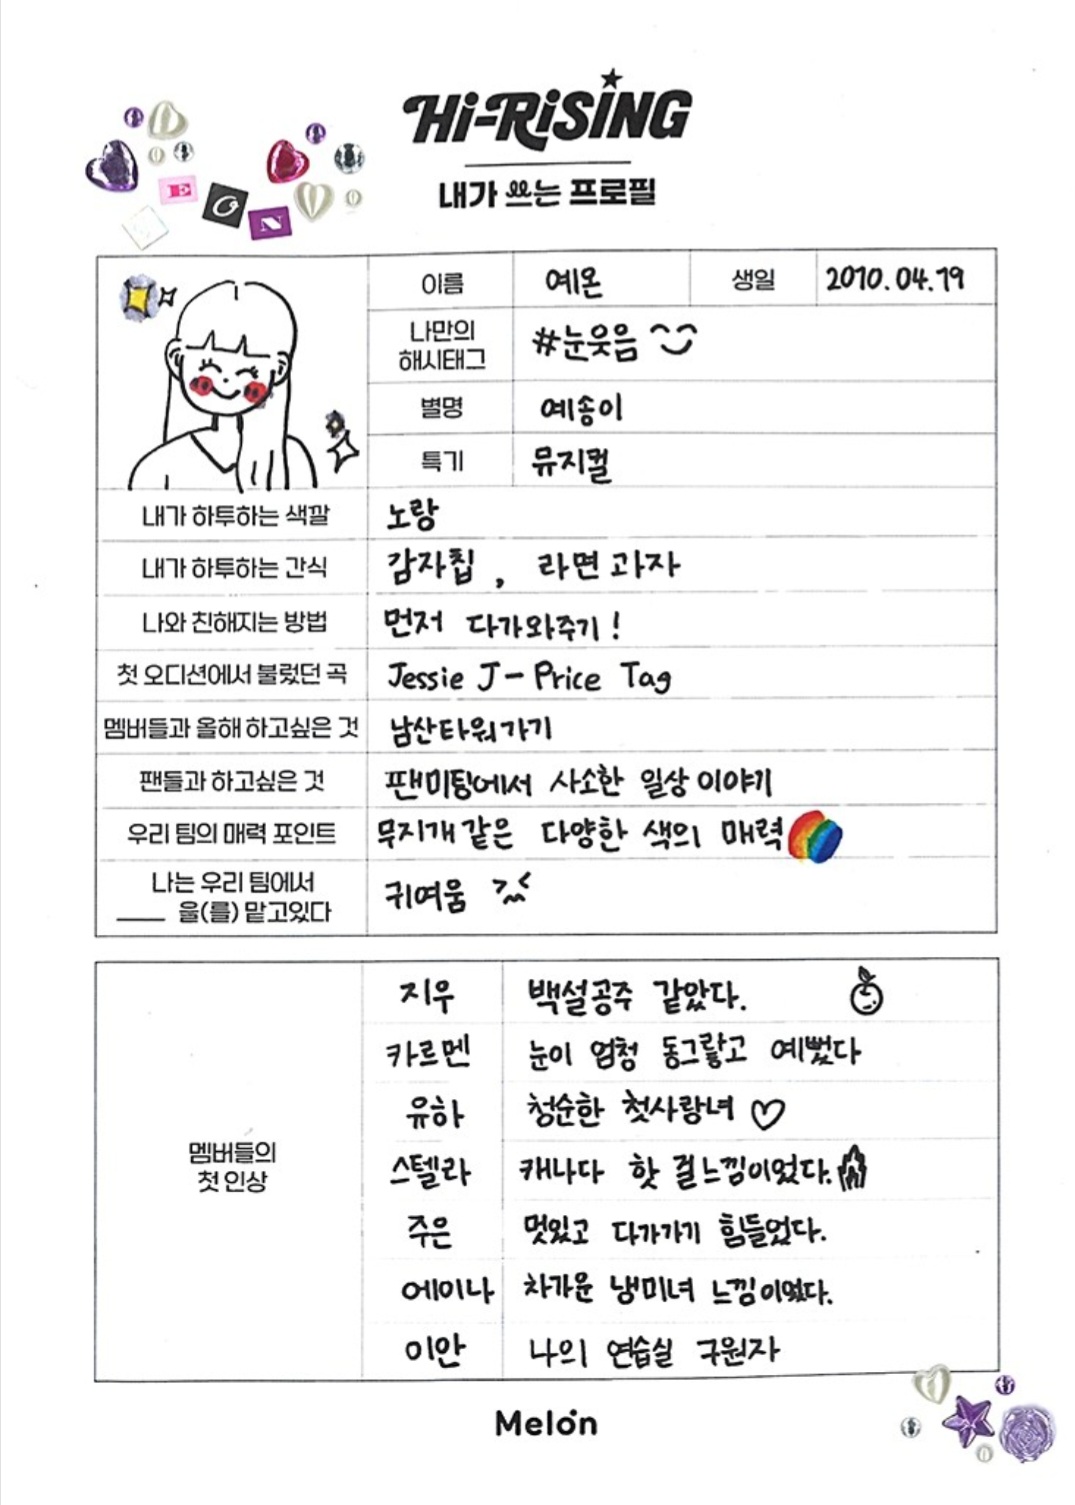 Hi-RiSiNG
내가 쓰는 프로필
E O N
이름 예온 생일 2010.04.19
나만의
해시태그 #눈웃음
별명 예송이
특기 뮤지컬
내가 하투하는 색깔 노랑
내가 하투하는 간식 감자칩, 라면과자
나와 친해지는 방법 먼저 다가와주기!
첫 오디션에서 불렀던 곡 Jessie J - Price Tag
멤버들과 올해 하고싶은 것 남산타워가기
팬들과 하고싶은 것 팬미팅에서 사소한 일상이야기
우리 팀의 매력 포인트 무지개같은 다양한 색의 매력
나는 우리 팀에서
____ 을(를) 맡고있다 귀여움
멤버들의
첫인상
지우 백설공주 같았다.
카르멘 눈이 엄청 동그랗고 예뻤다
유하 청순한 첫사랑녀 ♡
스텔라 캐나다 핫 걸느낌이었다.
주은 멋있고 다가가기 힘들었다.
에이나 차가운 냉미녀 느낌이었다.
이안 나의 연습실 구원자
Melon